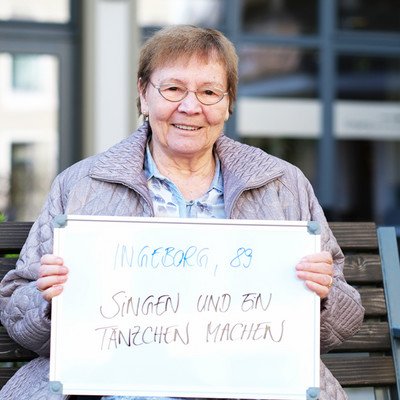 INGEBORG, 89
SINGEN UND EIN
TÄNZCHEN MACHEN